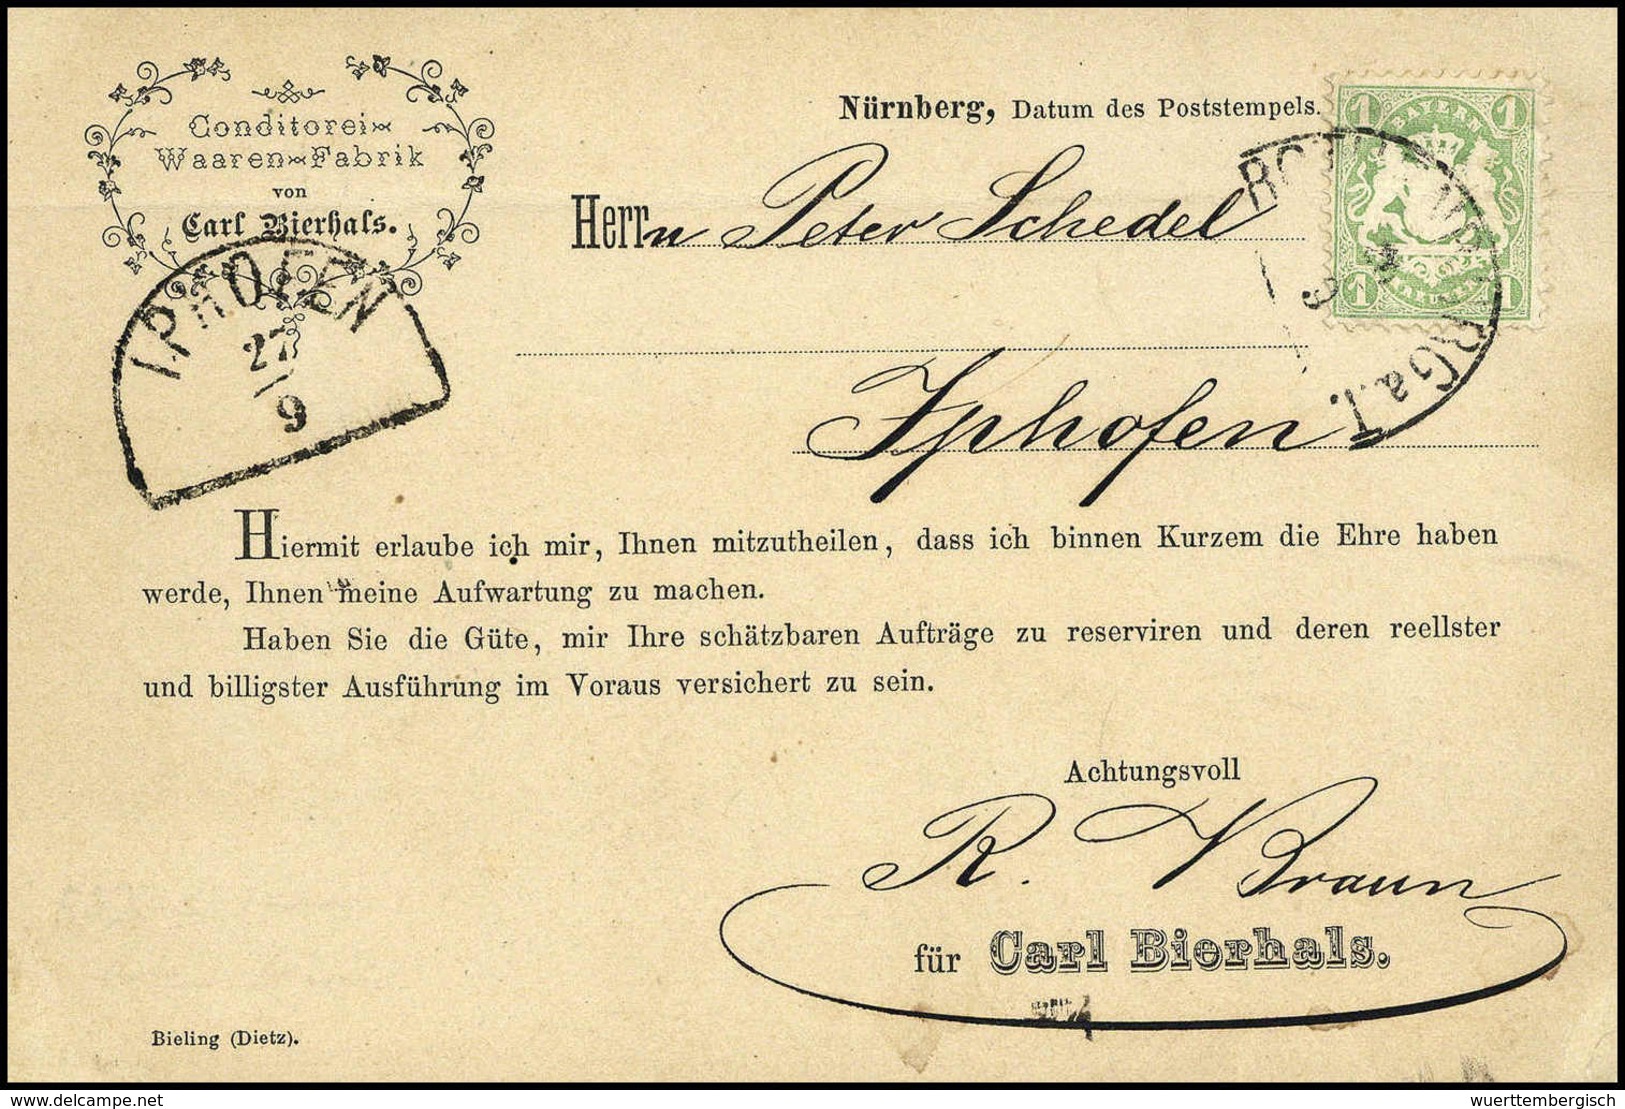 Conditorei-
Waaren-Fabrik
von
Carl Bierhals.
Nürnberg, Datum des Poststempels.
1 BAYERN 1
1 1
Herrn Peter Schedel
IPHOFEN
27/9
RG a. T.
Iphofen
Hiermit erlaube ich mir, Ihnen mitzutheilen, dass ich binnen Kurzem die Ehre haben
werde, Ihnen meine Aufwartung zu machen.
Haben Sie die Güte, mir Ihre schätzbaren Aufträge zu reserviren und deren reellster
und billigster Ausführung im Voraus versichert zu sein.
Achtungsvoll
R. Braun
für Carl Bierhals.
Bieling (Dietz).
delcampe.net
wuerttembergisch